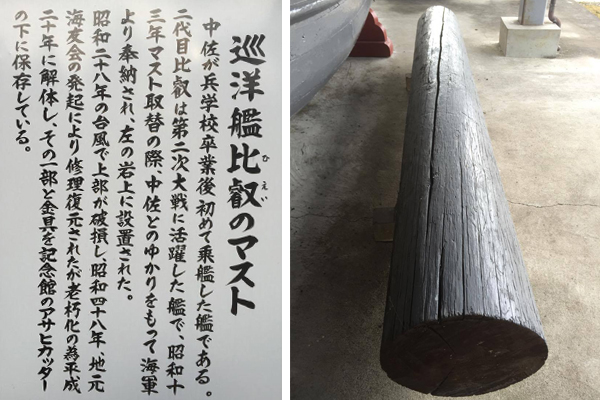 巡洋艦比叡のマスト
ひえい
中佐が兵学校卒業後初めて乗艦した艦である。
二代目比叡は第二次大戦に活躍した艦で、昭和十
三年マスト取替の際、中佐とのゆかりをもって海軍
より奉納され、左の岩上に設置された。
昭和二十八年の台風で上部が破損し、昭和四十八年、地元
海友会の発起により修理復元されたが老朽化の為平成
二十年に解体し、その一部と金具を記念館のアサヒカッター
の下に保存している。